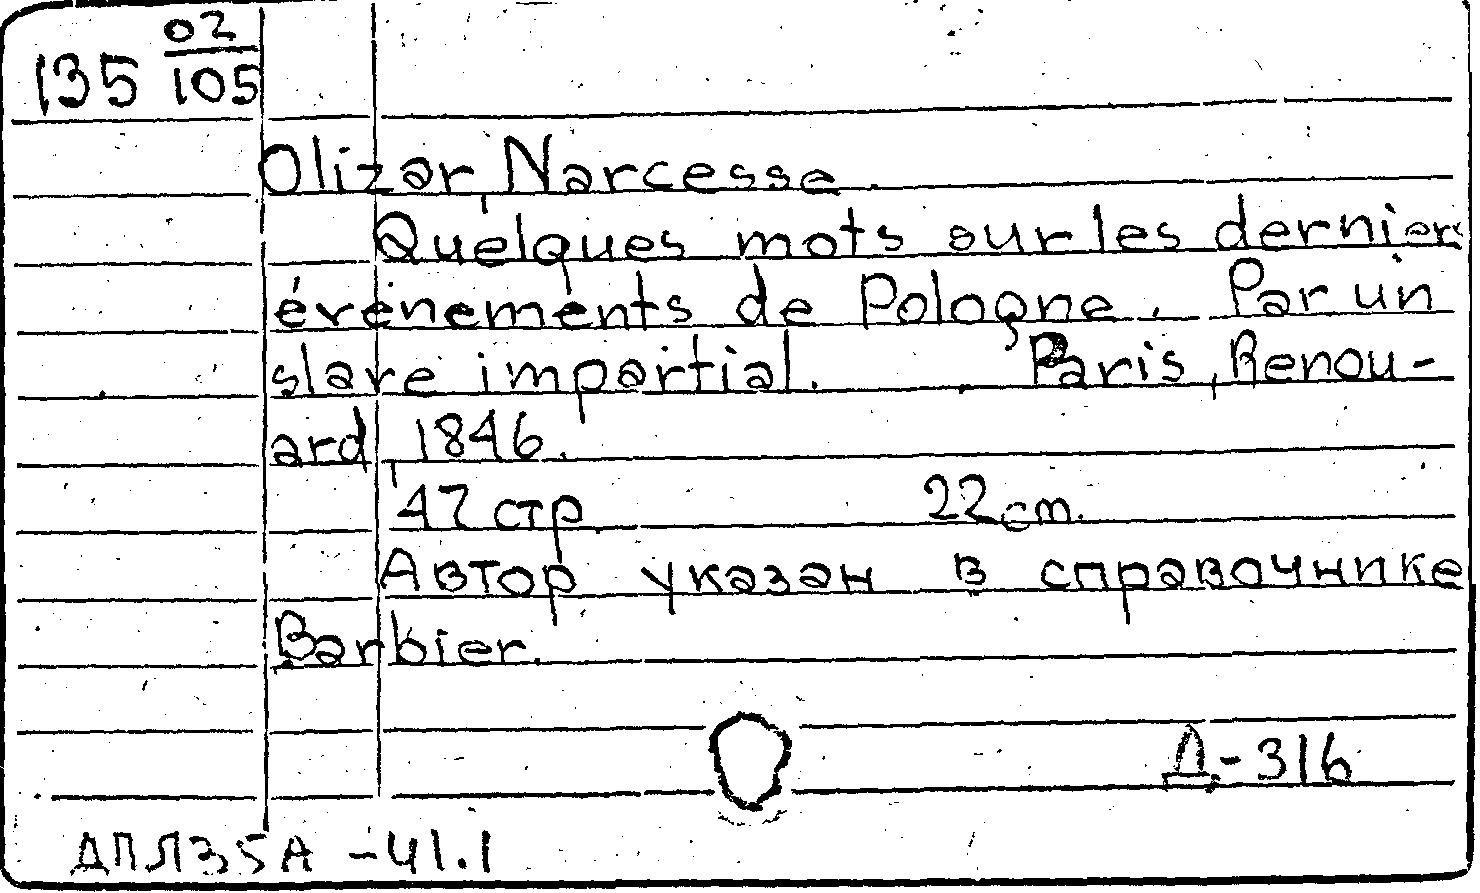 135 02/105
Olizar, Narcesse.
Quelques mots sur les derniers
événements de Pologne. Par un
slave impartial. Paris, Renou-
ard, 1846.
47 стр. 22 cm.
Автор указан в справочнике
Barbier.
Д-316
ДПЛ35А-41.1